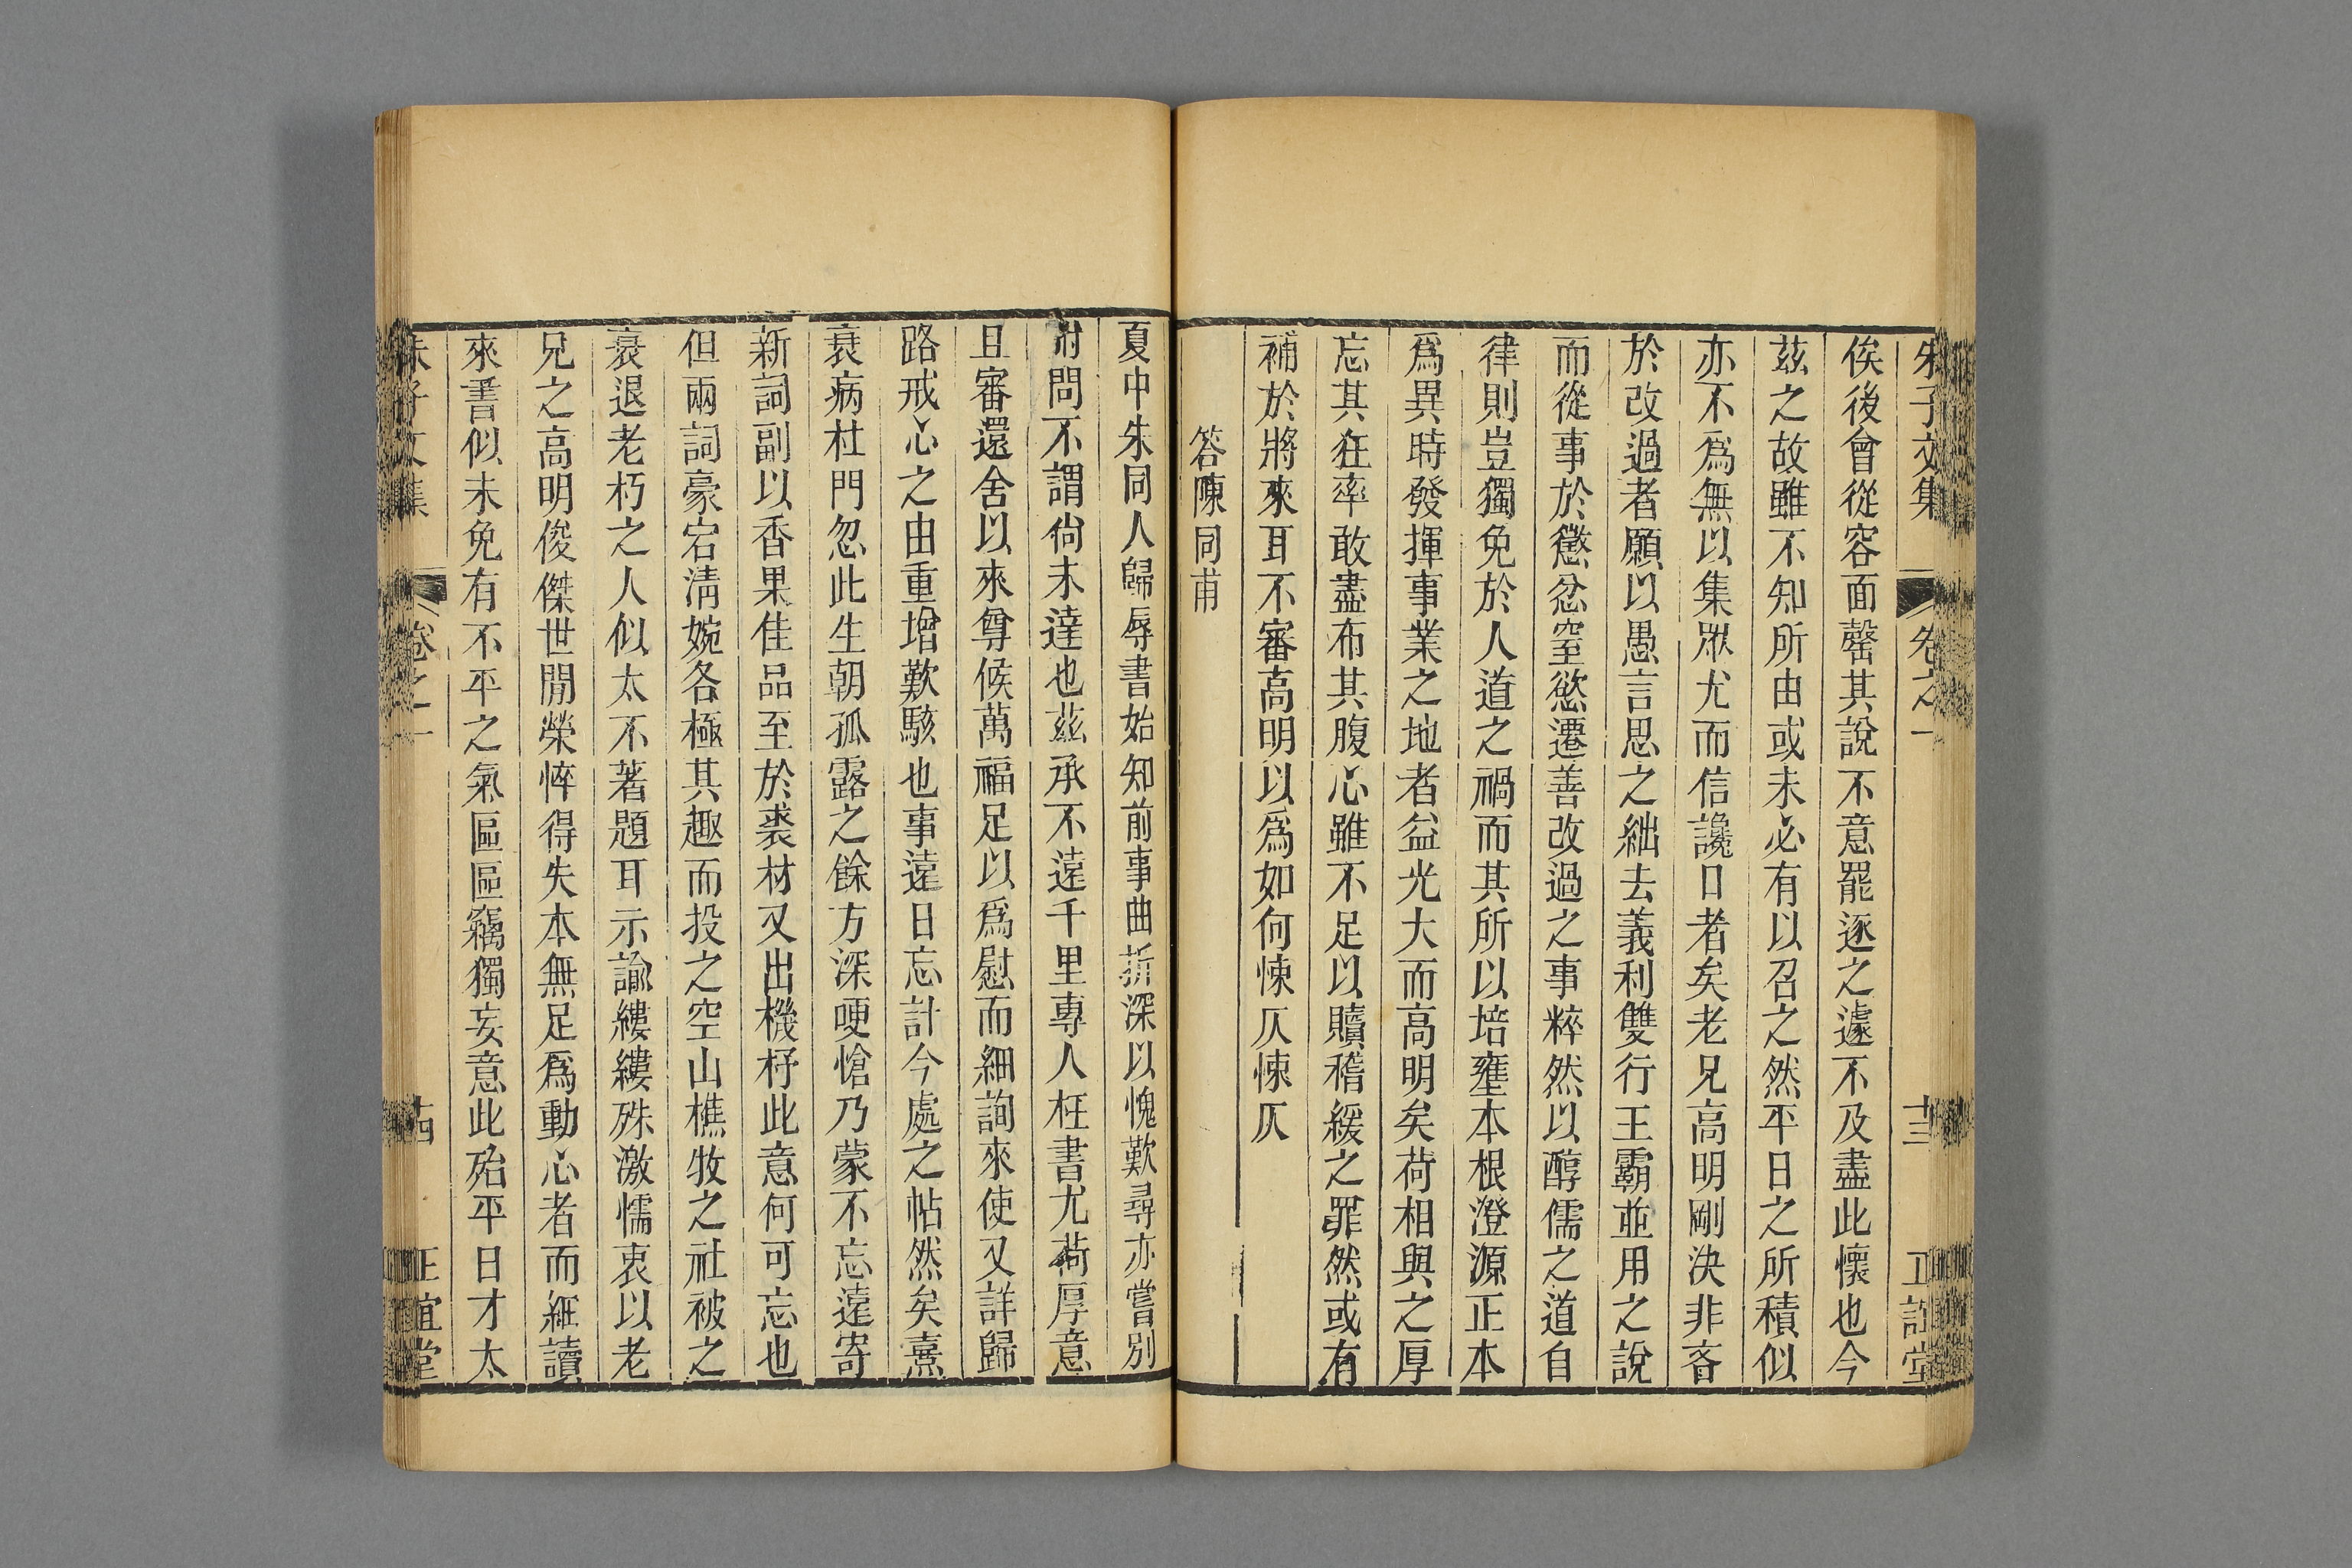 朱子文集 卷之一 十三 正誼堂
俟後會從容面罄其說不意罷逐之遽不及盡此懷也今
茲之故雖不知所由或未必有以召之然平日之所積似
亦不為無以集眾尤而信讒口者矣老兄高明剛決非吝
於改過者願以愚言思之絀去義利雙行王霸並用之說
而從事於懲忿窒慾遷善改過之事粹然以醇儒之道自
律則豈獨免於人道之禍而其所以培壅本根澄源正本
為異時發揮事業之地者益光大而高明矣荷相與之厚
忘其狂率敢盡布其腹心雖不足以贖稽緩之罪然或有
補於將來耳不審高明以為如何悚仄悚仄
答陳同甫
夏中朱同人歸辱書始知前事曲折深以愧歎尋亦嘗別
附問不謂尙未達也茲承不遠千里專人枉書尤荷厚意
且審還舍以來尊候萬福足以為慰而細詢來使又詳歸
路戒心之由重增歎駭也事遠日忘計今處之帖然矣熹
衰病杜門忽此生朝孤露之餘方深哽愴乃蒙不忘遠寄
新詞副以香果佳品至於裘材又出機杼此意何可忘也
但兩詞豪宕清婉各極其趣而投之空山樵牧之社被之
衰退老朽之人似太不著題耳示諭縷縷殊激懦衷以老
兄之高明俊傑世閒榮悴得失本無足為動心者而細讀
來書似未免有不平之氣區區竊獨妄意此殆平日才太
朱子文集 卷之一 十四 正誼堂